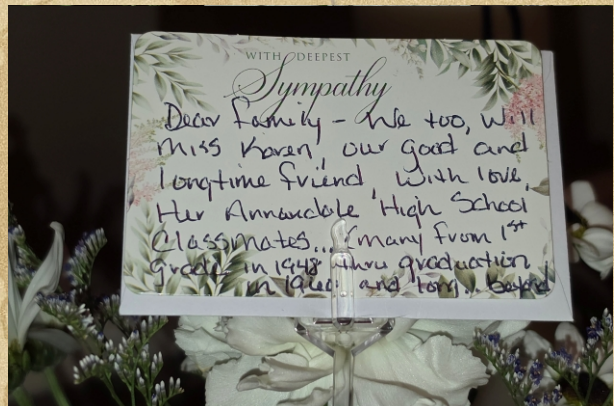 WITH DEEPEST
Sympathy
Dear Family - We too, will
miss Karen, our good and
longtime friend, With love,
Her Annandale High School
Classmates... (many from 1st
grade in 1948 thru graduation
in and long beyond